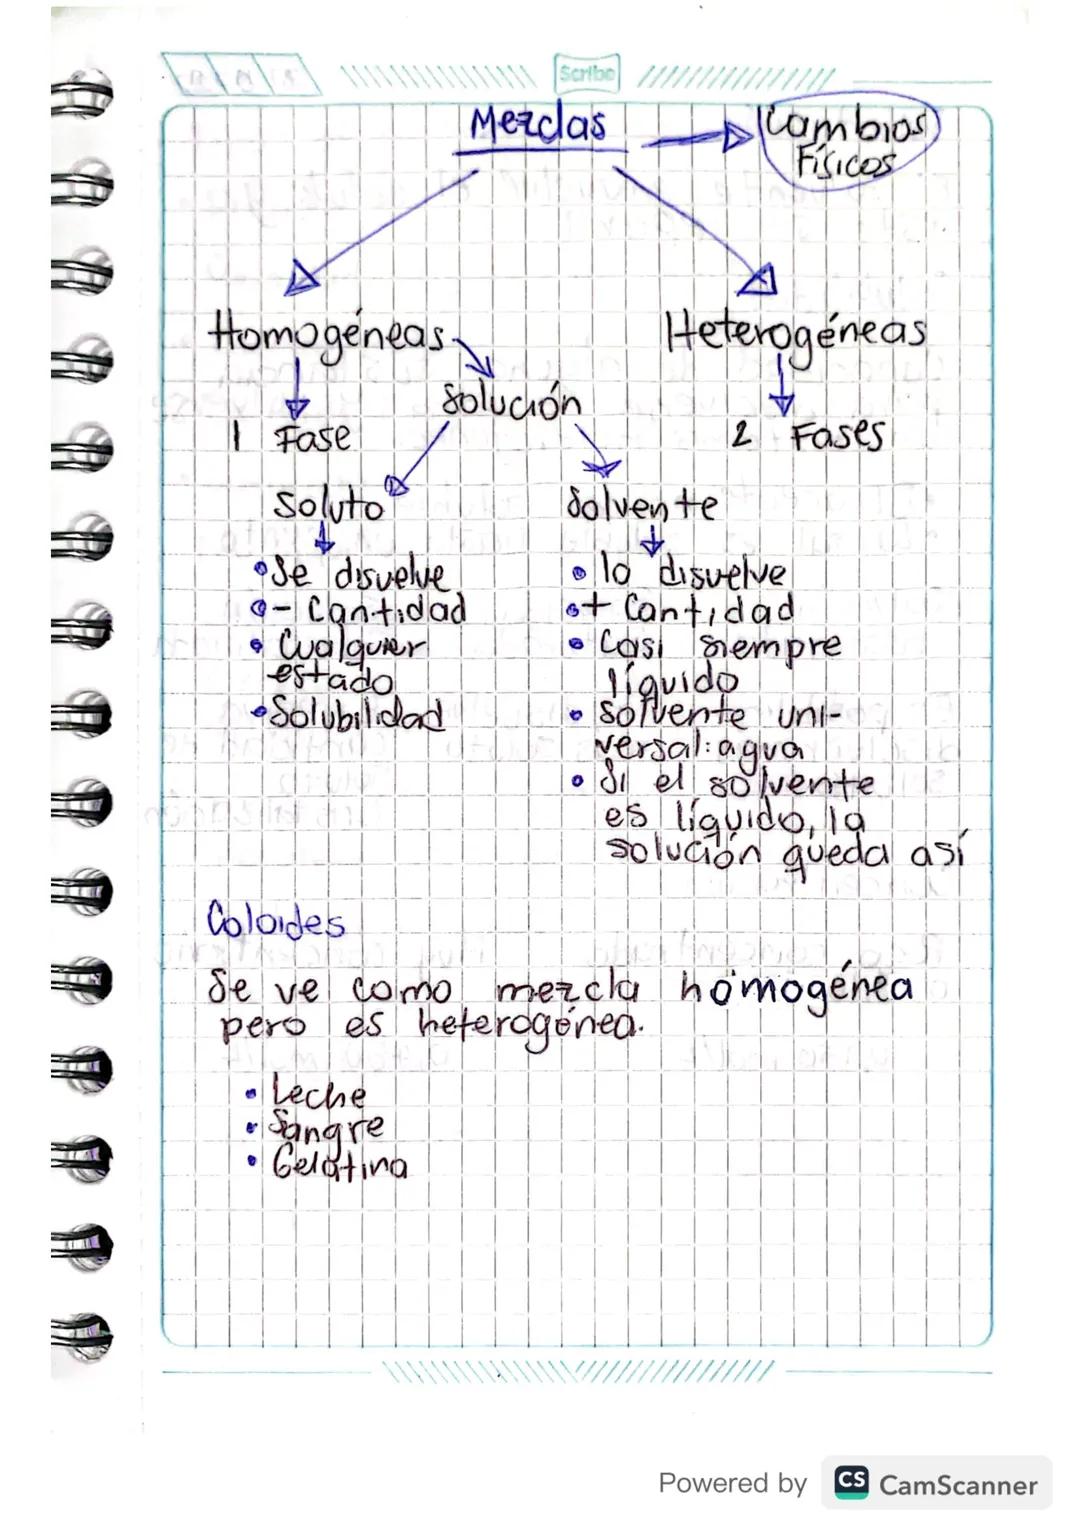 Scribe
Mezclas
Cambios
Físicos
Homogéneas
Heterogéneas
solución
1 Fase
2 Fases
Soluto
Solvente
• Se disuelve
• - Cantidad
• Cualquier
estado
• Solubilidad
• lo disuelve
• + Cantidad
• Casi siempre
líquido
• Solvente uni-
versal: agua
• Si el solvente
es líquido, la
solución queda así
Coloides
Se ve como mezcla homogénea
pero es heterogénea.
• Leche
• Sangre
• Gelatina
Powered by CS CamScanner